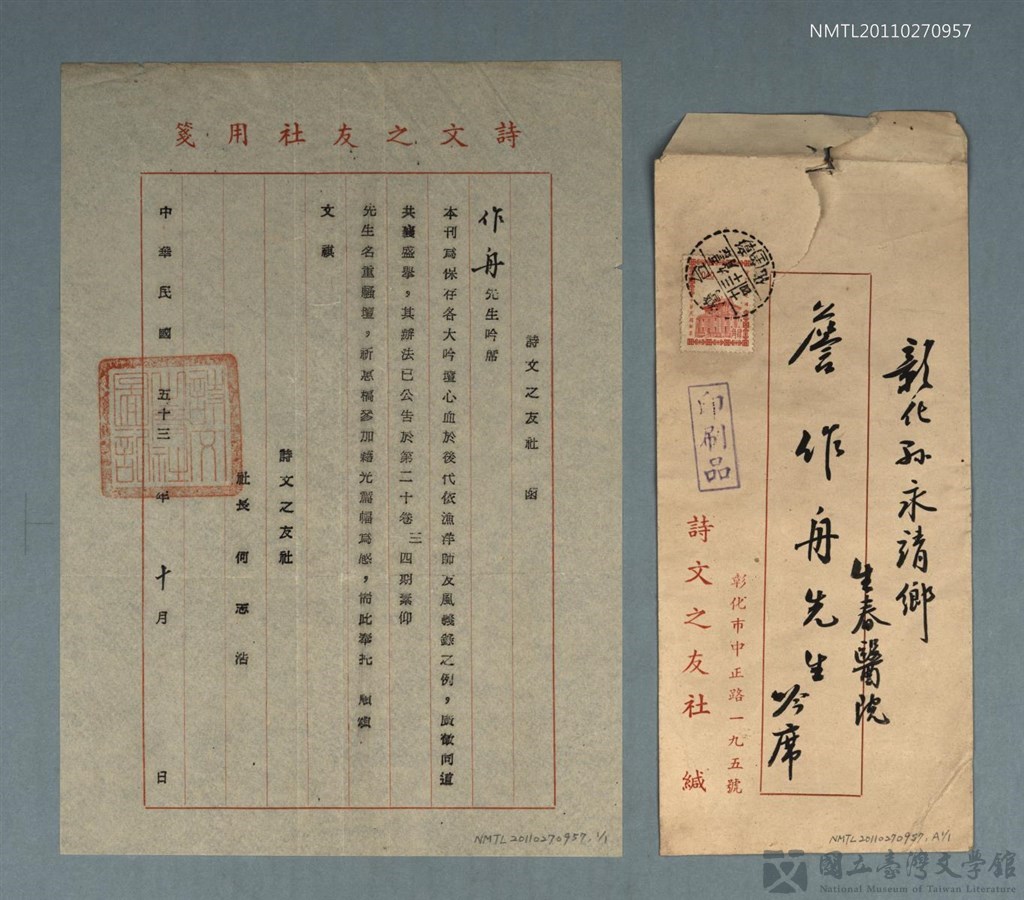 NMTL20110270957
詩文之友社用箋
詩文之友社 函
作舟先生吟席
本刊為保存各大吟壇心血於後代依漁洋師友風義錄之例，廣徵同道
共襄盛舉，其辦法已公告於第二十卷三四期素仰
先生名重騷壇，祈惠稿參加藉光篇幅為感，耑此奉托 順頌
文祺
詩文之友社
社長 何 志 浩
中華民國 五十三 年 十月 日
NMTL20110270957, 1/1
彰化縣永靖鄉
生春醫院
詹作舟先生吟席
印刷品
彰化市中正路一九五號
詩文之友社 緘
NMTL20110270957, A1/1
國立臺灣文學館
National Museum of Taiwan Literature